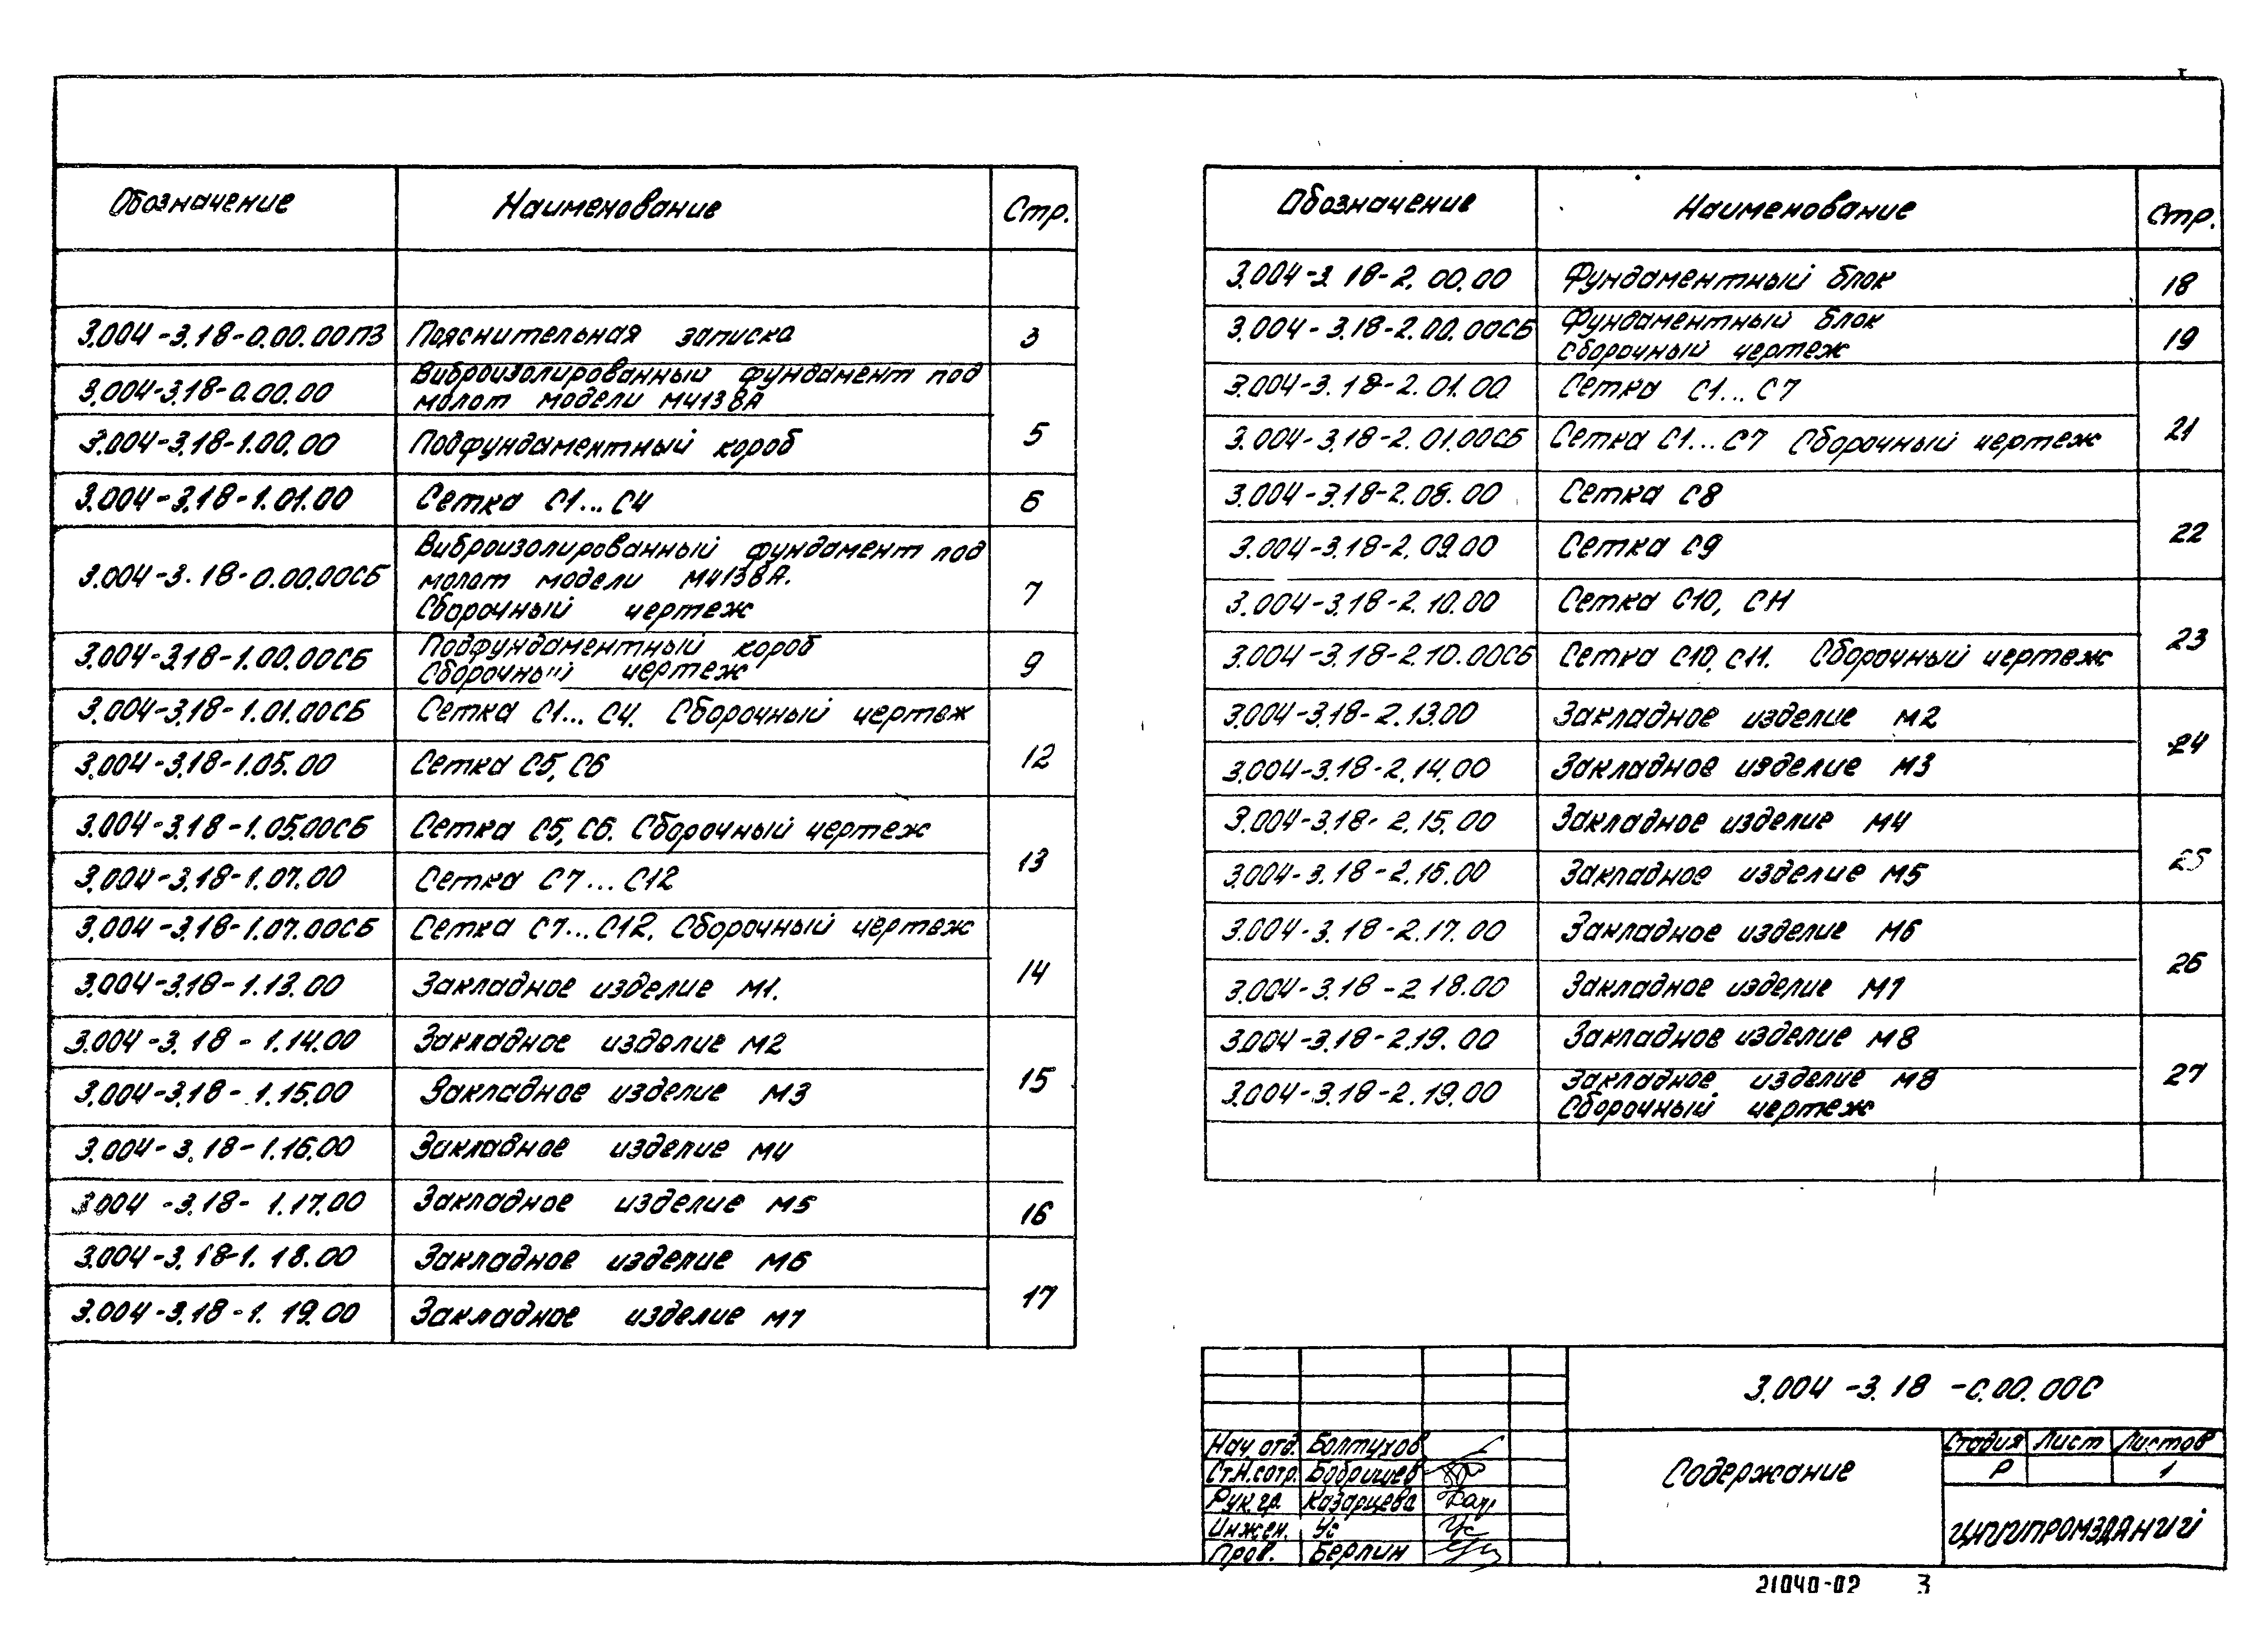 Обозначение Наименование Стр.
3.004-3.18-0.00.00ПЗ Пояснительная записка 3
3.004-3.18-0.00.00 Виброизолированный фундамент под
молот модели М4138А
3.004-3.18-1.00.00 Подфундаментный короб 5
3.004-3.18-1.01.00 Сетка С1...С4 6
Виброизолированный фундамент под
3.004-3.18-0.00.00СБ молот модели М4138А. 7
Сборочный чертеж
3.004-3.18-1.00.00СБ Подфундаментный короб 9
Сборочный чертеж
3.004-3.18-1.01.00СБ Сетка С1...С4. Сборочный чертеж
3.004-3.18-1.05.00 Сетка С5, С6 12
3.004-3.18-1.05.00СБ Сетка С5, С6. Сборочный чертеж
3.004-3.18-1.07.00 Сетка С7...С12 13
3.004-3.18-1.07.00СБ Сетка С7...С12. Сборочный чертеж
3.004-3.18-1.13.00 Закладное изделие М1. 14
3.004-3.18-1.14.00 Закладное изделие М2
3.004-3.18-1.15.00 Закладное изделие М3 15
3.004-3.18-1.16.00 Закладное изделие М4
3.004-3.18-1.17.00 Закладное изделие М5 16
3.004-3.18-1.18.00 Закладное изделие М6
3.004-3.18-1.19.00 Закладное изделие М7 17
Обозначение Наименование Стр.
3.004-3.18-2.00.00 Фундаментный блок 18
3.004-3.18-2.00.00СБ Фундаментный блок 19
Сборочный чертеж
3.004-3.18-2.01.00 Сетка С1...С7
3.004-3.18-2.01.00СБ Сетка С1...С7 Сборочный чертеж 21
3.004-3.18-2.08.00 Сетка С8
3.004-3.18-2.09.00 Сетка С9 22
3.004-3.18-2.10.00 Сетка С10, С11
3.004-3.18-2.10.00СБ Сетка С10, С11. Сборочный чертеж 23
3.004-3.18-2.13.00 Закладное изделие М2
3.004-3.18-2.14.00 Закладное изделие М3 24
3.004-3.18-2.15.00 Закладное изделие М4
3.004-3.18-2.16.00 Закладное изделие М5 25
3.004-3.18-2.17.00 Закладное изделие М6
3.004-3.18-2 18.00 Закладное изделие М7 26
3.004-3.18-2.19.00 Закладное изделие М8
3.004-3.18-2.19.00 Закладное изделие М8 27
Сборочный чертеж
3.004-3.18-0.00.00С
Нач. отд. Болтухов
Ст.н.сотр. Бобрищев
Рук.гр. Казарцева
Инжен. Ус
Пров. Берлин
Содержание
Стадия Лист Листов
Р 1
ЦНИИПРОМЗДАНИЙ
21040-02 3